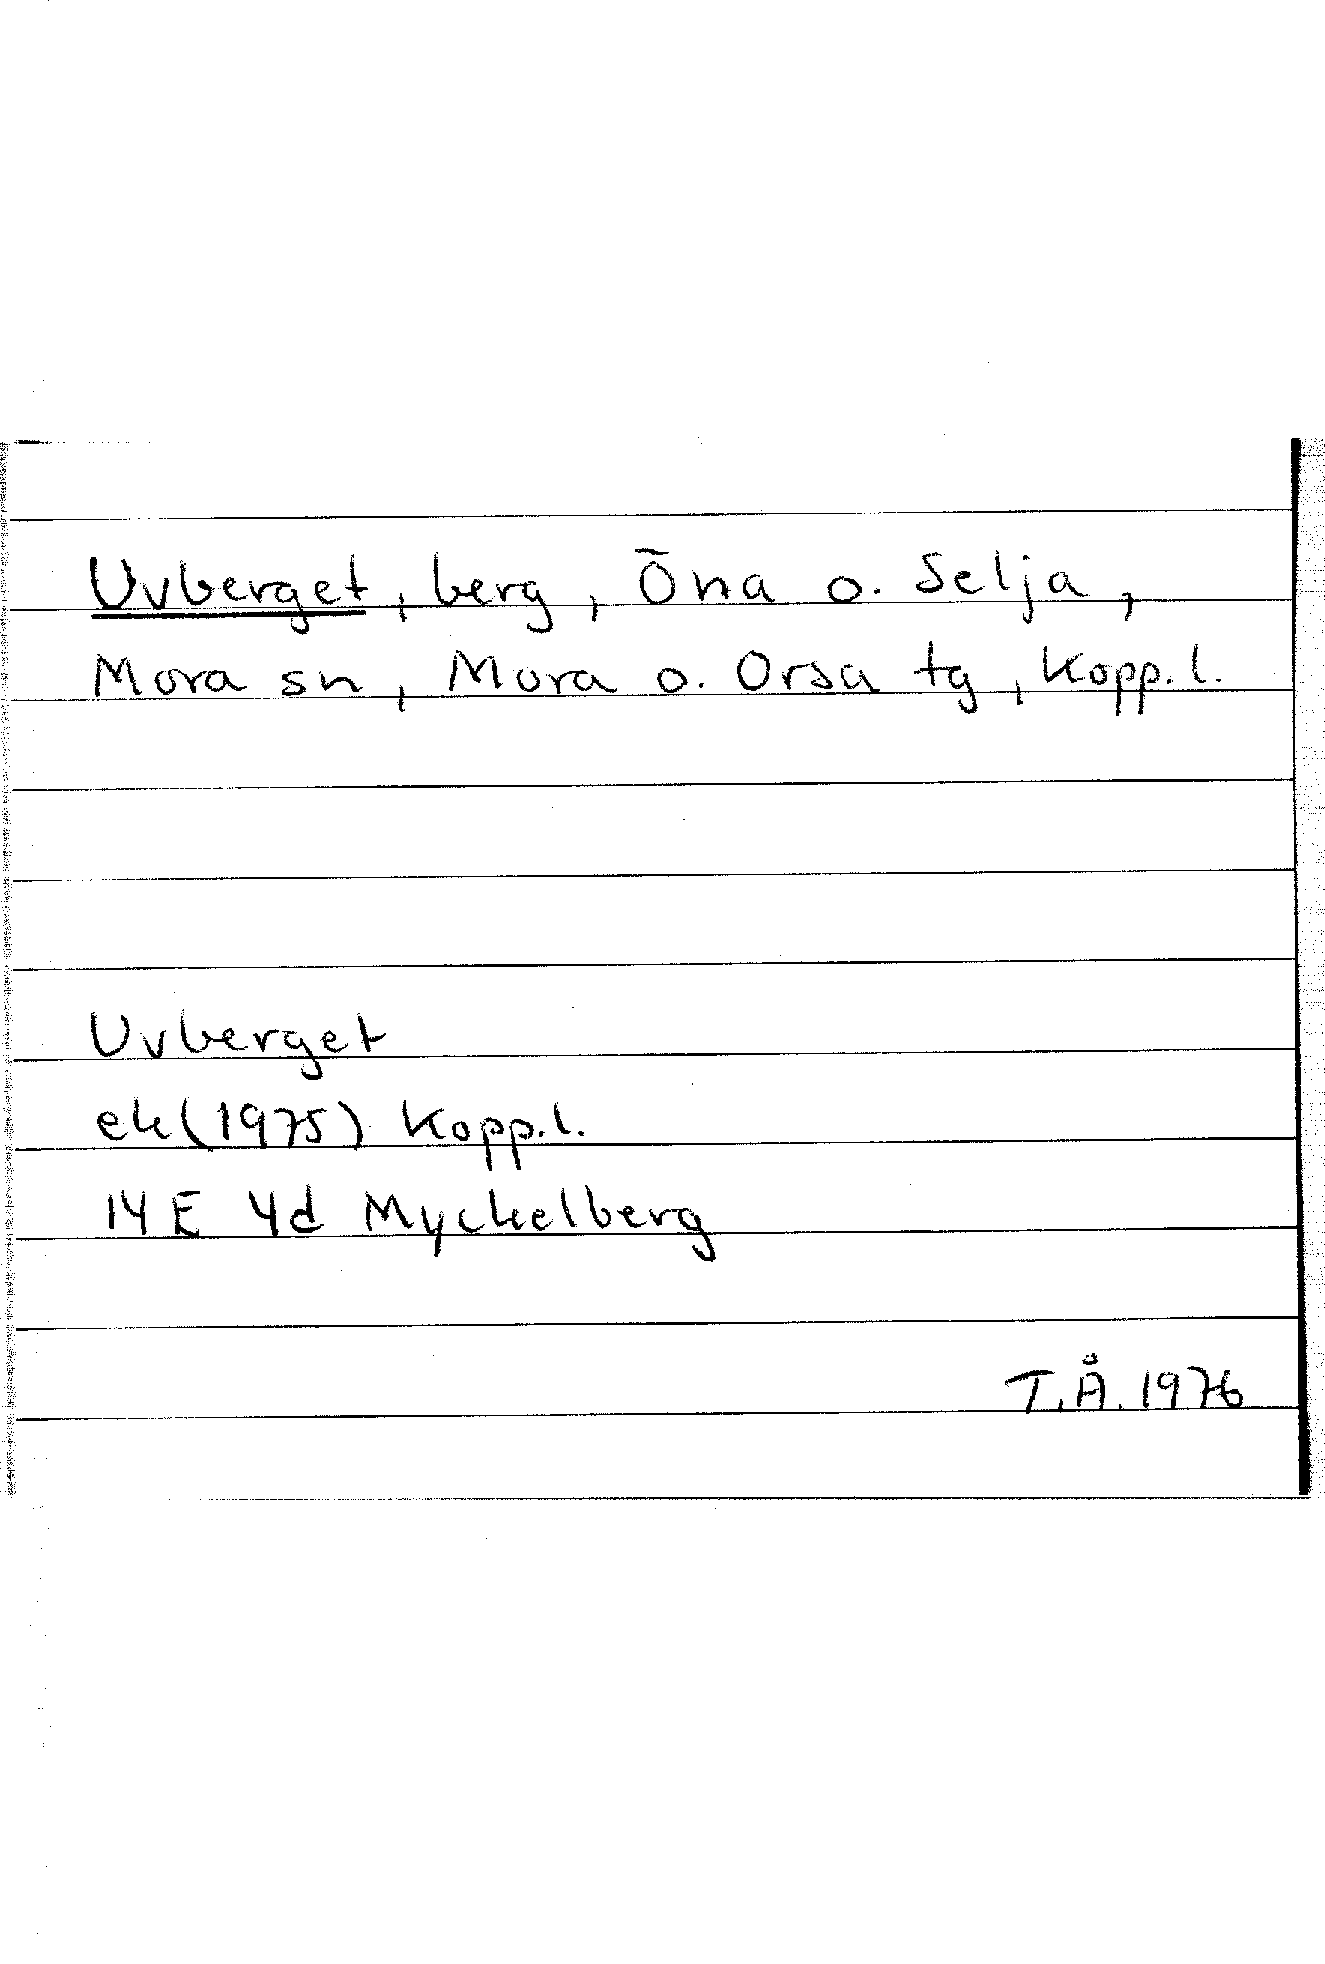 Uvberget, berg, Öna o. Selja,
Mora sn, Mora o. Orsa tg, Kopp.l.
Uvberget
ek(1975) Kopp.l.
14E 4d Myckelberg
T.Å. 1976